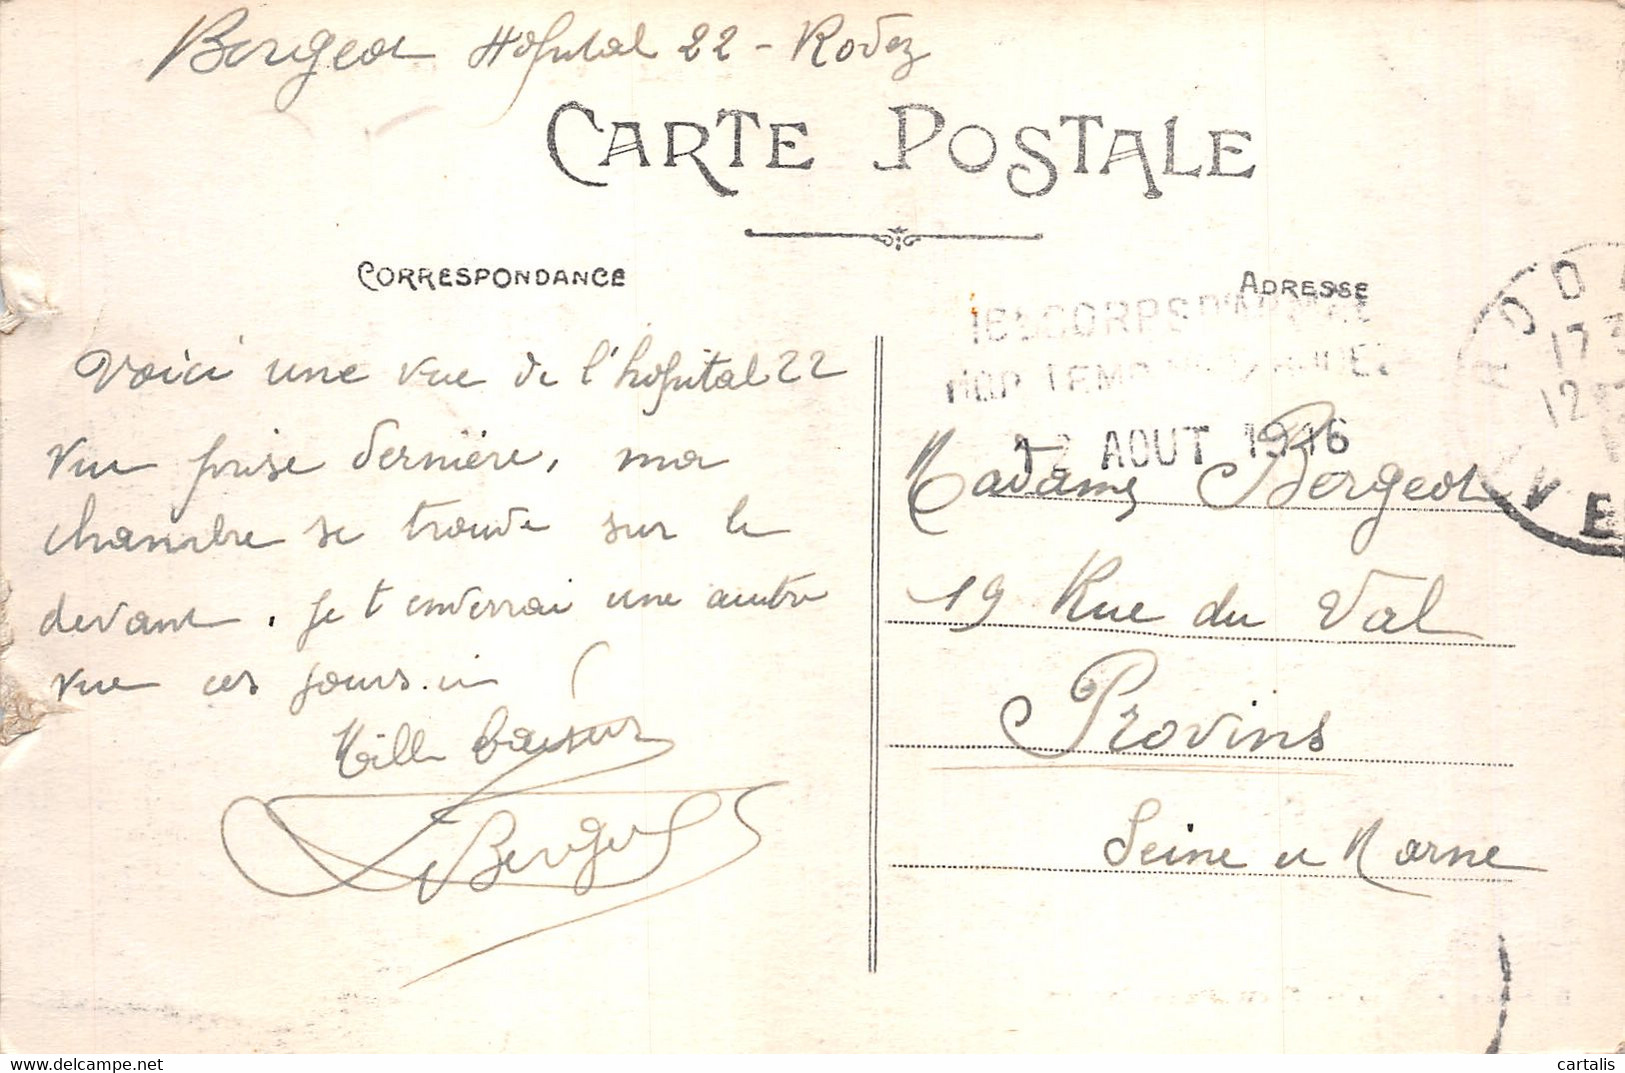 Bergeot Hôpital 22 - Rodez
CARTE POSTALE
CORRESPONDANCE
ADRESSE
Voici une vue de l'hopital 22
vue prise derrière, ma
chambre se trouve sur le
devant. Je t'enverrai une autre
vue ces jours-ci
Mille baisers
Bergeot
16E CORPS D'ARMEE
12 AOUT 1916
Madame Bergeot
19 Rue du Val
Provins
Seine et Marne
17
12
cartalis